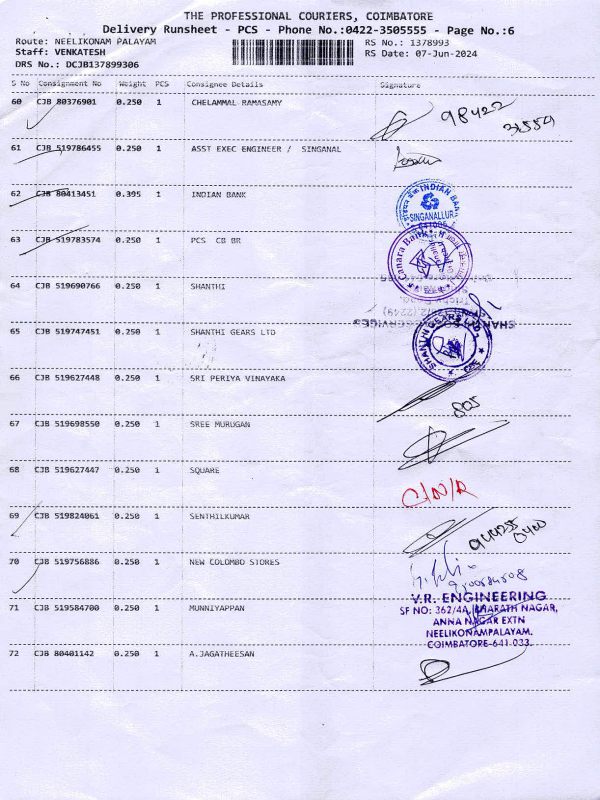 THE PROFESSIONAL COURIERS, COIMBATORE
Delivery Runsheet - PCS - Phone No.:0422-3505555 - Page No.:6
Route: NEELIKONAM PALAYAM RS No.: 1378993
Staff: VENKATESH RS Date: 07-Jun-2024
DRS No.: DCJB137899306
S No Consignment No Weight PCS Consignee Details Signature
60 CJB 80376901 0.250 1 CHELAMMAL RAMASAMY
98422
31554
61 CJB 519786455 0.250 1 ASST EXEC ENGINEER / SINGANAL
62 CJB 80413451 0.395 1 INDIAN BANK
INDIAN BANK
SINGANALLUR
641005
63 CJB 519783574 0.250 1 PCS CB BR
Canara Bank
64 CJB 519690766 0.250 1 SHANTHI
65 CJB 519747451 0.250 1 SHANTHI GEARS LTD
SHANTHI GEARS LTD
66 CJB 519627448 0.250 1 SRI PERIYA VINAYAKA
805
67 CJB 519698550 0.250 1 SREE MURUGAN
68 CJB 519627447 0.250 1 SQUARE
C/N/R
69 CJB 519824061 0.250 1 SENTHILKUMAR
944255
0400
70 CJB 519756886 0.250 1 NEW COLOMBO STORES
71 CJB 519584700 0.250 1 MUNNIYAPPAN
V.R. ENGINEERING
SF NO: 362/4A, BHARATH NAGAR,
ANNA NAGAR EXTN
NEELIKONAMPALAYAM,
COIMBATORE-641 033.
72 CJB 80401142 0.250 1 A.JAGATHEESAN